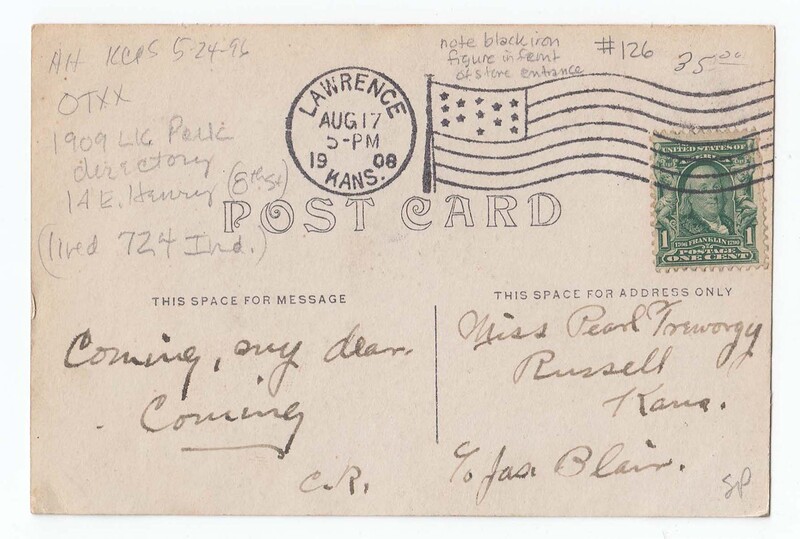 AH KCPS 5-24-96
note black iron
figure in front
of store entrance
#126
35.00
OTXX
1909 LK Polk
directory
14 E. Henry (8th St)
(lived 724 Ind.)
LAWRENCE
AUG 17
5-PM
19 08
KANS.
UNITED STATES OF
1
1706 FRANKLIN 1790
1
POSTAGE
ONE CENT
POST CARD
THIS SPACE FOR MESSAGE
THIS SPACE FOR ADDRESS ONLY
Coming, my dear.
Coming
C.R.
Miss Pearl Treworgy
Russell
Kans.
c/o Jas. Blair.
SP